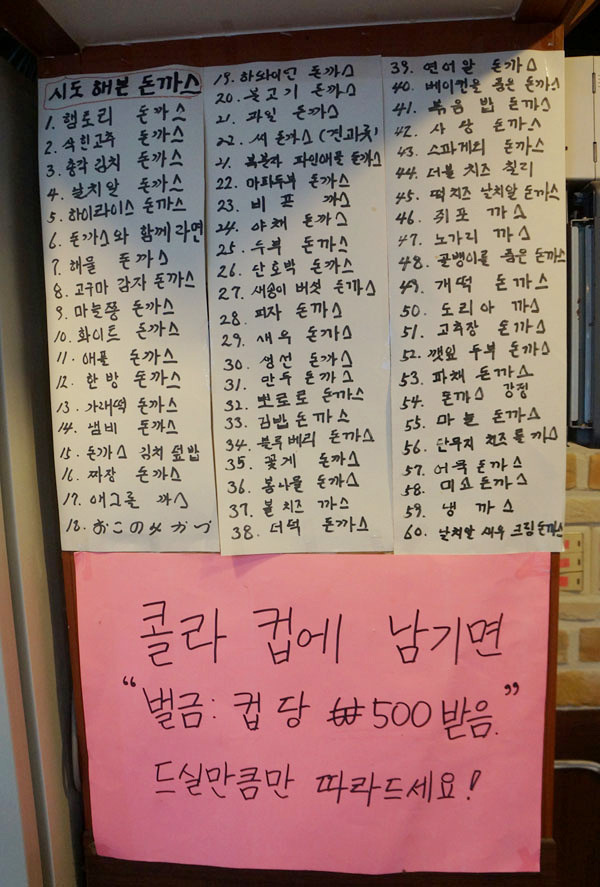 시도 해본 돈까스
1. 햄도리 돈까스
2. 삭힌고추 돈까스
3. 총각 김치 돈까스
4. 날치알 돈까스
5. 하이라이스 돈까스
6. 돈까스와 함께 라면
7. 해물 돈까스
8. 고구마 감자 돈까스
9. 마늘쫑 돈까스
10. 화이트 돈까스
11. 애플 돈까스
12. 한방 돈까스
13. 가래떡 돈까스
14. 냄비 돈까스
15. 돈까스 김치 덮밥
16. 짜장 돈까스
17. 애그롤 까스
18. おこのみかつ
19. 하와이안 돈까스
20. 불고기 돈까스
21. 과일 돈까스
22. 씨 돈까스 (견과류)
21. 복분자 파인애플 돈까스
22. 마파두부 돈까스
23. 비프 까스
24. 야채 돈까스
25. 두부 돈까스
26. 단호박 돈까스
27. 새송이 버섯 돈까스
28. 피자 돈까스
29. 새우 돈까스
30. 생선 돈까스
31. 만두 돈까스
32. 뽀로로 돈까스
33. 김밥 돈까스
34. 블루베리 돈까스
35. 꽃게 돈까스
36. 콩나물 돈까스
37. 볼 치즈 까스
38. 더덕 돈까스
39. 연어알 돈까스
40. 베이컨을 품은 돈까스
41. 볶음밥 돈까스
42. 사랑 돈까스
43. 스파게티 돈까스
44. 더블 치즈 칠리
45. 떡치즈 날치알 돈까스
46. 쥐포 까스
47. 노가리 까스
48. 골뱅이를 품은 돈까스
49. 개떡 돈까스
50. 도리아 까스
51. 고추장 돈까스
52. 깻잎 두부 돈까스
53. 파채 돈까스
54. 돈까스 강정
55. 마늘 돈까스
56. 단무지 치즈롤 까스
57. 어묵 돈까스
58. 미소 돈까스
59. 냉 까스
60. 날치알 새우 크림 돈까스
콜라 컵에 남기면
"벌금: 컵당 ₩500 받음."
드실만큼만 따라드세요!